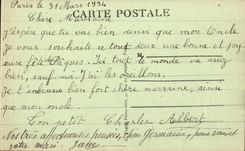 Paris le 31 Mars 1934
CARTE POSTALE
Chère Marraine
J'espère que tu vas bien ainsi que mon Oncle
Je vous souhaite à tout deux une bonne et joy-
euse fête de Pâques. Ici tout le monde va assez
bien, sauf moi J'ai les Oreillons.
Je t'embrasse bien fort chère marraine, ainsi
que mon oncle.
Ton petit Charles Albert
Nos très affectueuses pensées, chère Germaine, pour vous et
votre mari.